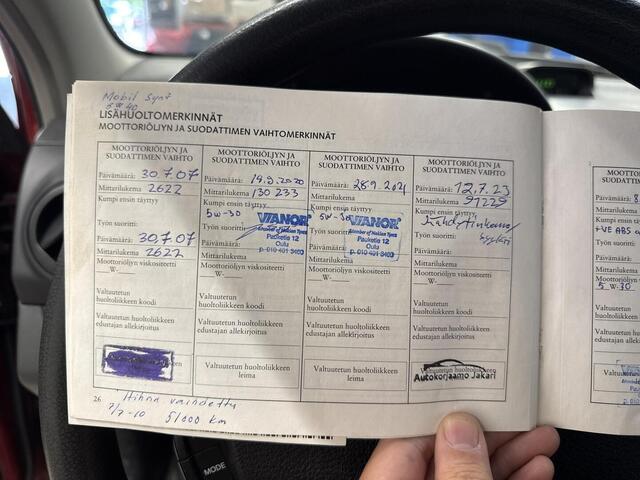 Mobil Synt
5W40
LISÄHUOLTOMERKINNÄT
MOOTTORIÖLJYN JA SUODATTIMEN VAIHTOMERKINNÄT
MOOTTORIÖLJYN JA
SUODATTIMEN VAIHTO
Päivämäärä: 30.07.07
Mittarilukema 2622
Kumpi ensin täyttyy
Työn suoritti:
Päivämäärä: 30.07.07
Mittarilukema 2622
Moottoriöljyn viskositeetti
W-
Valtuutetun
huoltoliikkeen koodi
Valtuutetun huoltoliikkeen
edustajan allekirjoitus
MOOTTORIÖLJYN JA
SUODATTIMEN VAIHTO
Päivämäärä: 19.9.2020
Mittarilukema 130 233
Kumpi ensin täyttyy
5W-30
VIANOR
Member of Nokian Tyres
Työn suoritti:
Paukatie 12
Oulu
p. 010 401 3403
Päivämäärä:
Mittarilukema
Moottoriöljyn viskositeetti
W-
Valtuutetun
huoltoliikkeen koodi
Valtuutetun huoltoliikkeen
edustajan allekirjoitus
Valtuutetun huoltoliikkeen
leima
MOOTTORIÖLJYN JA
SUODATTIMEN VAIHTO
Päivämäärä: 28.9.2021
Mittarilukema
Kumpi ensin täyttyy
5W-30
VIANOR
Member of Nokian Tyres
Työn suoritti:
Paukatie 12
Oulu
p. 010 401 3403
Päivämäärä:
Mittarilukema
Moottoriöljyn viskositeetti
W-
Valtuutetun
huoltoliikkeen koodi
Valtuutetun huoltoliikkeen
edustajan allekirjoitus
Valtuutetun huoltoliikkeen
leima
MOOTTORIÖLJYN JA
SUODATTIMEN VAIHTO
Päivämäärä: 12.7.23
Mittarilukema 91229
Kumpi ensin täyttyy
Työn suoritti:
Päivämäärä:
Mittarilukema
Moottoriöljyn viskositeetti
W-
Valtuutetun
huoltoliikkeen koodi
Valtuutetun huoltoliikkeen
edustajan allekirjoitus
Autokorjaamo Jakari
26
Hihna vaihdettu
7/7-10
51000 km
Päivämäärä: 8
Mittarilukema
Kumpi ensin
+VE ABS
Työn suoritti:
Päivämäärä:
Mittarilukema
Moottoriöljyn
5 W 30
Valtuutetun
huoltoliikkeen
Valtuutetun
edustajan
MODE